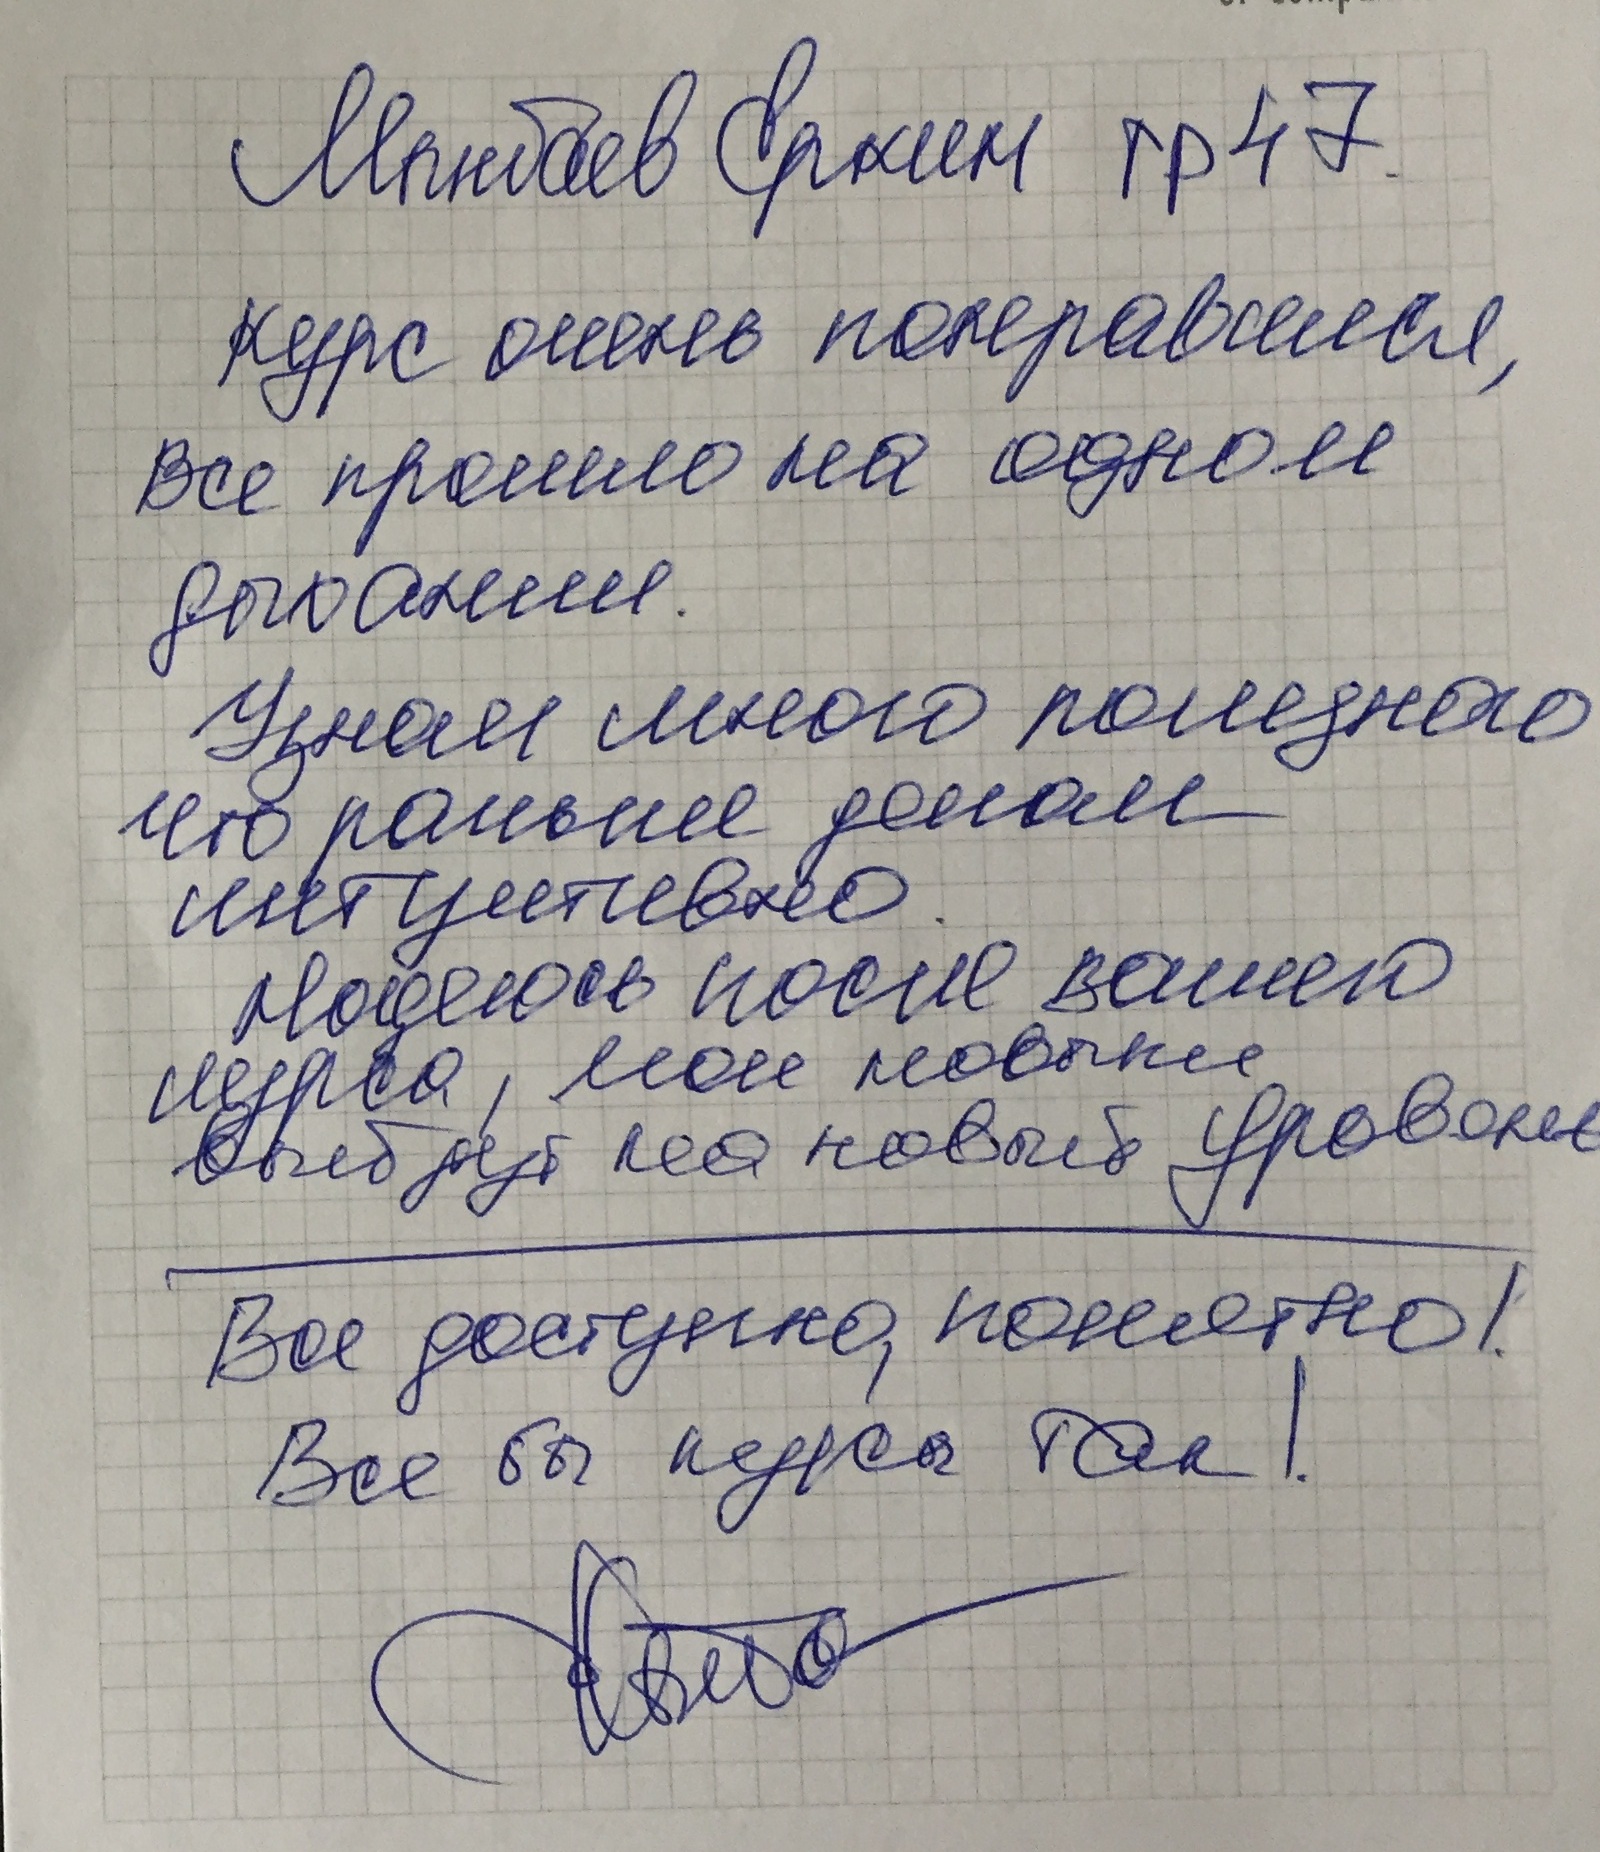 Мынбаев Еркин гр 47.
Курс очень понравился,
Все прошло на одном
дыхании.
Узнал много полезного
что раньше делал
интуитивно.
Надеюсь после вашего
курса, мои навыки
выйдут на новый уровень
Все доступно, понятно!
Все бы курсы так!